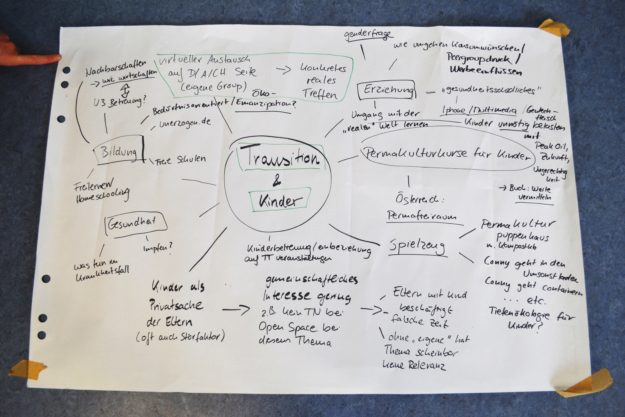 Nachbarschaften
→ wie wirtschaften
U3 Betreuung?
virtueller Austausch
auf D/A/CH Seite
(eigene Group)
→ konkretes
reales
Treffen
genderfrage
wie umgehen Konsumwünschen/
Peergroupdruck/
Werbeeinflüssen
Erziehung
"gesundheitsschädliches"
Iphone/Multimedia/
Bedürfnisorientiert/Öko-Emanzipation?
unerzogen.de
Bildung
Freie Schulen
Freilernen/
Homeschooling
Umgang mit der
"realen" Welt lernen
Kinder unnötig belasten
mit
Peak Oil,
Zukunft,
Ungerechtig
keit
→ Buch: Werte
vermitteln
Transition
&
Kinder
Permakulturkurse für Kinder
Österreich:
Permafreiraum
Gesundheit
Impfen?
was tun im
Krankheitsfall
Kinderbetreuung/einbeziehung
auf TT veranstaltungen
Spielzeug
Permakultur
puppenhaus
m. Kompostklo
Conny geht in den
Umsonstladen
Conny geht containern
.... etc.
Tiefenökologie für
Kinder?
Kinder als
Privatsache
der Eltern
(oft auch Störfaktor)
→ gemeinschaftliches
Interesse gering
zB kein TN bei
Open Space bei
diesem Thema
→ Eltern mit Kind
beschäftigt
falsche Zeit
ohne "eigene" hat
Thema scheinbar
keine Relevanz